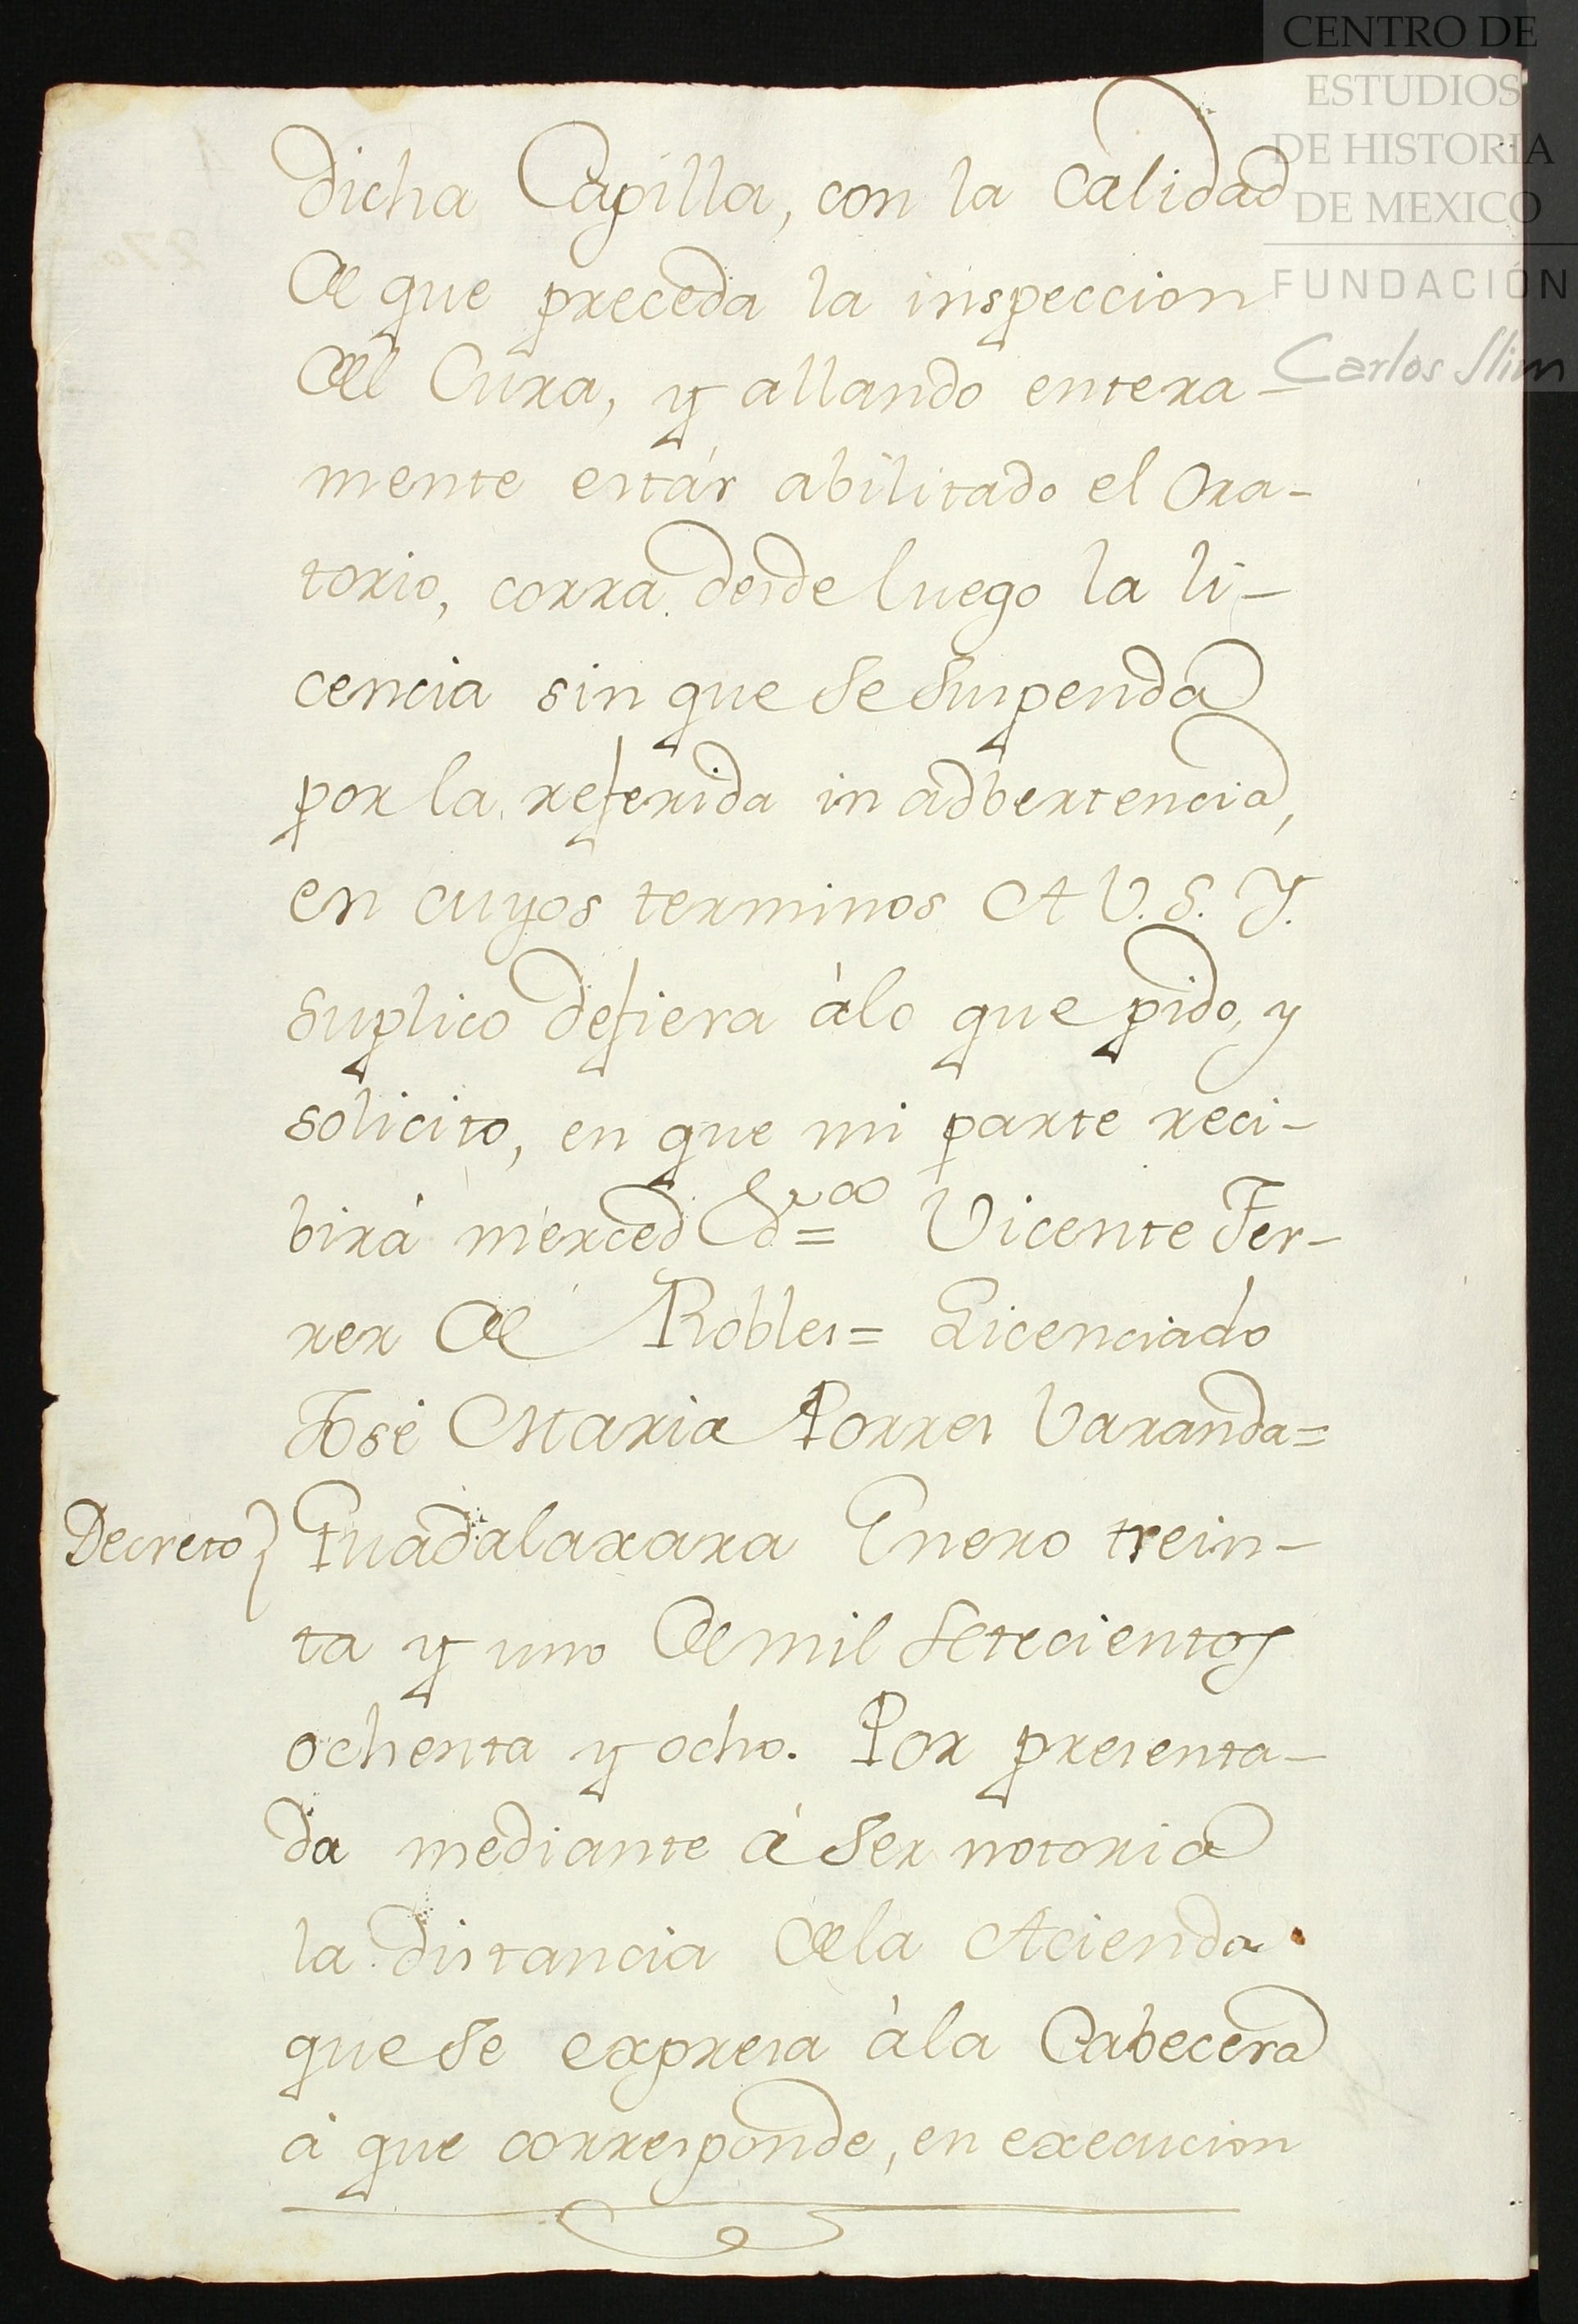 CENTRO DE
ESTUDIOS
DE HISTORIA
DE MEXICO
FUNDACIÓN
Carlos Slim
dicha Capilla, con la Calidad
de que preceda la inspeccion
del Cura, y allando entera-
mente estár abilitado el Ora-
torio, corra desde luego la li-
cencia sin que se suspenda
por la referida inadbertencia,
en cuyos terminos A V. S. Y.
suplico defiera àlo que pido, y
solicito, en que mi parte reci-
birá merced = Vicente Fer-
rer de Robles = Licenciado
José Maria Porres Varanda =
Decreto} Guadalaxara Enero trein-
ta y uno de mil setecientos
ochenta y ocho. Por presenta-
da mediante á ser notoria
la distancia dela Acienda
que se expresa àla Cabecera
á que corresponde, en execucion